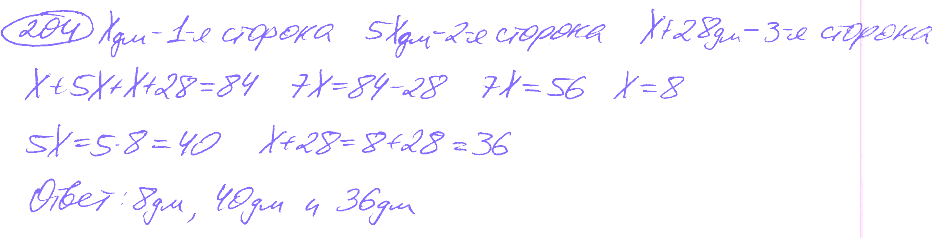 204 Xдм-1-я сторона 5Xдм-2-я сторона X+28дм-3-я сторона
X+5X+X+28=84 7X=84-28 7X=56 X=8
5X=5·8=40 X+28=8+28=36
Ответ: 8дм, 40дм и 36дм